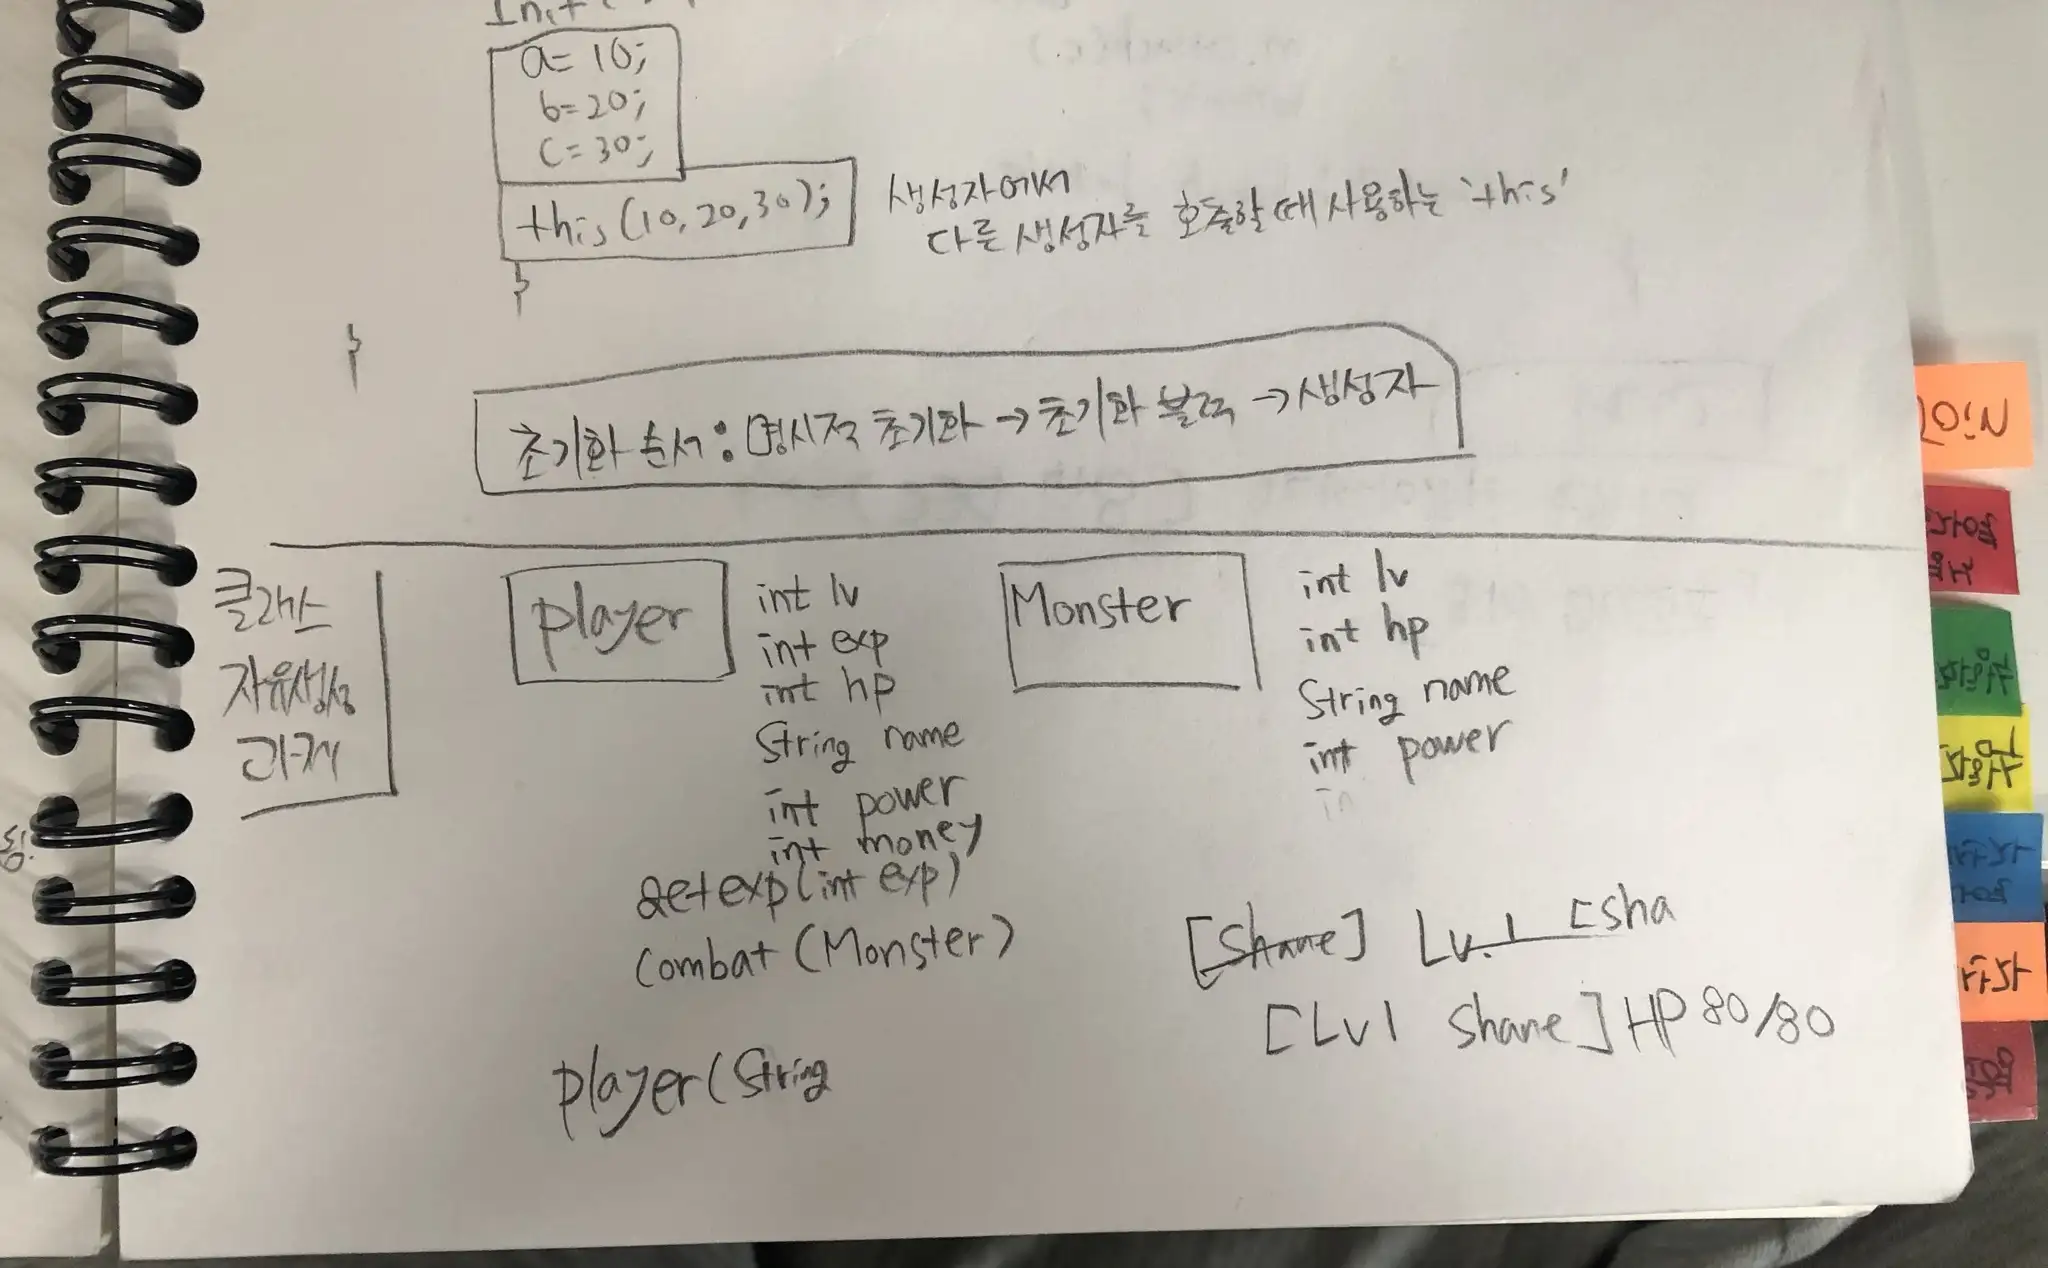 a= 10;
b=20;
c=30;
this (10, 20, 30);
}
생성자에서
다른 생성자를 호출할 때 사용하는 'this'
}
초기화 순서 : 명시적 초기화 → 초기화 블럭 → 생성자
클래스
자유생성
과제
player
int lv
int exp
int hp
String name
int power
int money
getexp(int exp)
combat (Monster)
player (String
Monster
int lv
int hp
String name
int power
in
[Shane] Lv. 1 [sha
[Lv1 Shane] HP 80/80